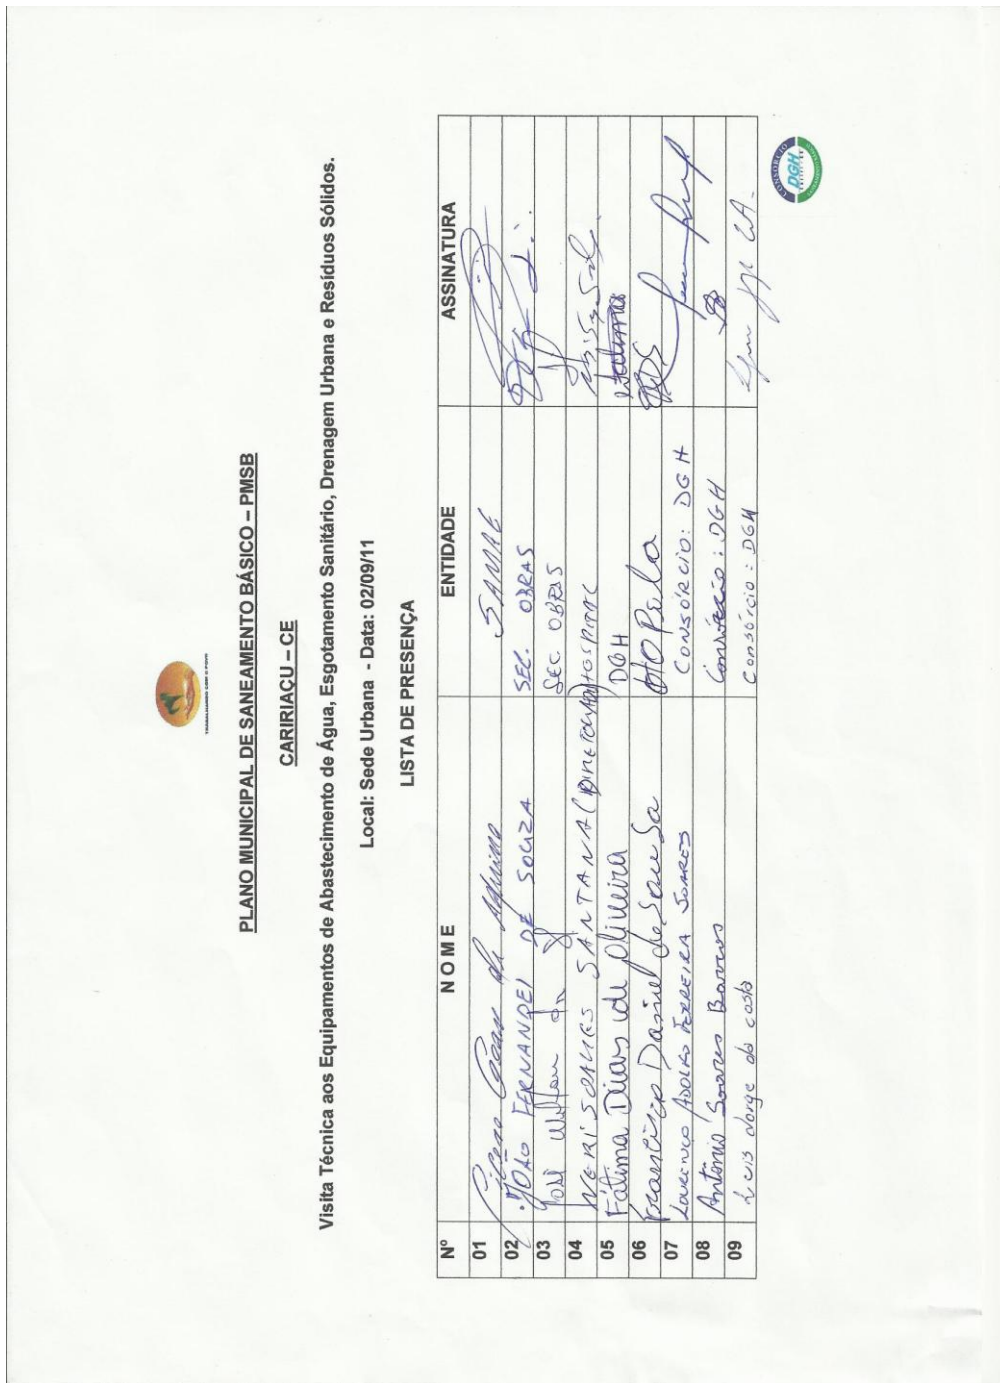 TRABALHANDO COM O POVO
PLANO MUNICIPAL DE SANEAMENTO BÁSICO – PMSB
CARIRIAÇU – CE
Visita Técnica aos Equipamentos de Abastecimento de Água, Esgotamento Sanitário, Drenagem Urbana e Resíduos Sólidos.
Local: Sede Urbana - Data: 02/09/11
LISTA DE PRESENÇA
Nº NOME ENTIDADE ASSINATURA
01 Cícero de Aquino SAMAE
02 JOÃO FERNANDES DE SOUZA SEC. OBRAS
03 José SEC OBRAS
04 SANTANA HOSPITAL
05 Fátima Dias de Oliveira DGH Fatima
06 Francisco Daniel de Sousa
07 LOURENÇO ADOLFO FERREIRA SOARES CONSÓRCIO: DGH
08 Antônio Soares Barros Consórcio: DGH
09 Luis Jorge da costa Consórcio: DGH
CONSÓRCIO
DGH